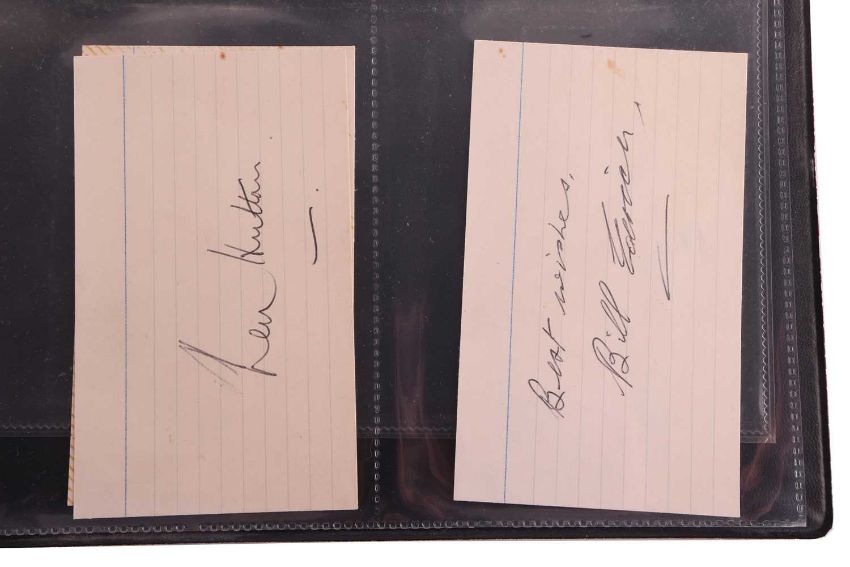 Len Hutton.
Best wishes,
Bill Edrich,